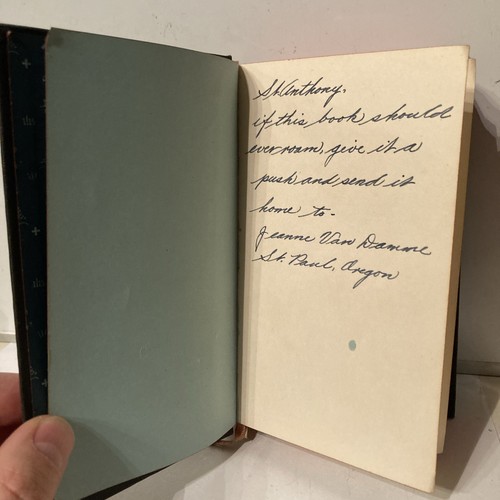 St. Anthony,
if this book should
ever roam, give it a
push and send it
home to -
Jeanne Van Damme
St. Paul, Oregon